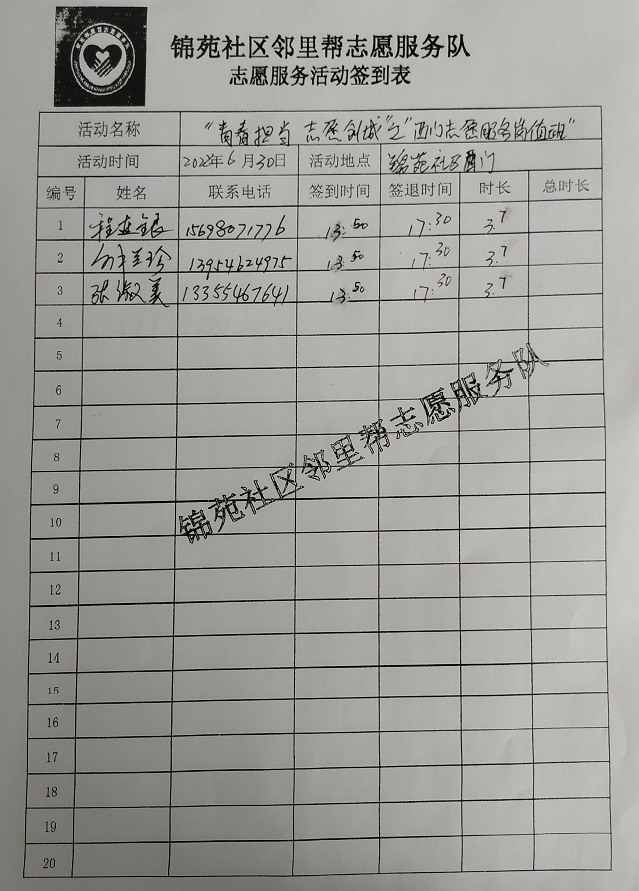 锦苑社区邻里帮志愿服务队
志愿服务活动签到表
活动名称 "青春担当 志愿创城"之"西门志愿服务岗值班"
活动时间 2022年6月30日 活动地点 锦苑社区西门
编号 姓名 联系电话 签到时间 签退时间 时长 总时长
1 15698071776 13:50 17:30 3.7
2 13954624975 13:50 17:30 3.7
3 张淑义 13355467641 13:50 17:30 3.7
4
5
6
7
8
9
10
11
12
13
14
15
16
17
18
19
20
锦苑社区邻里帮志愿服务队